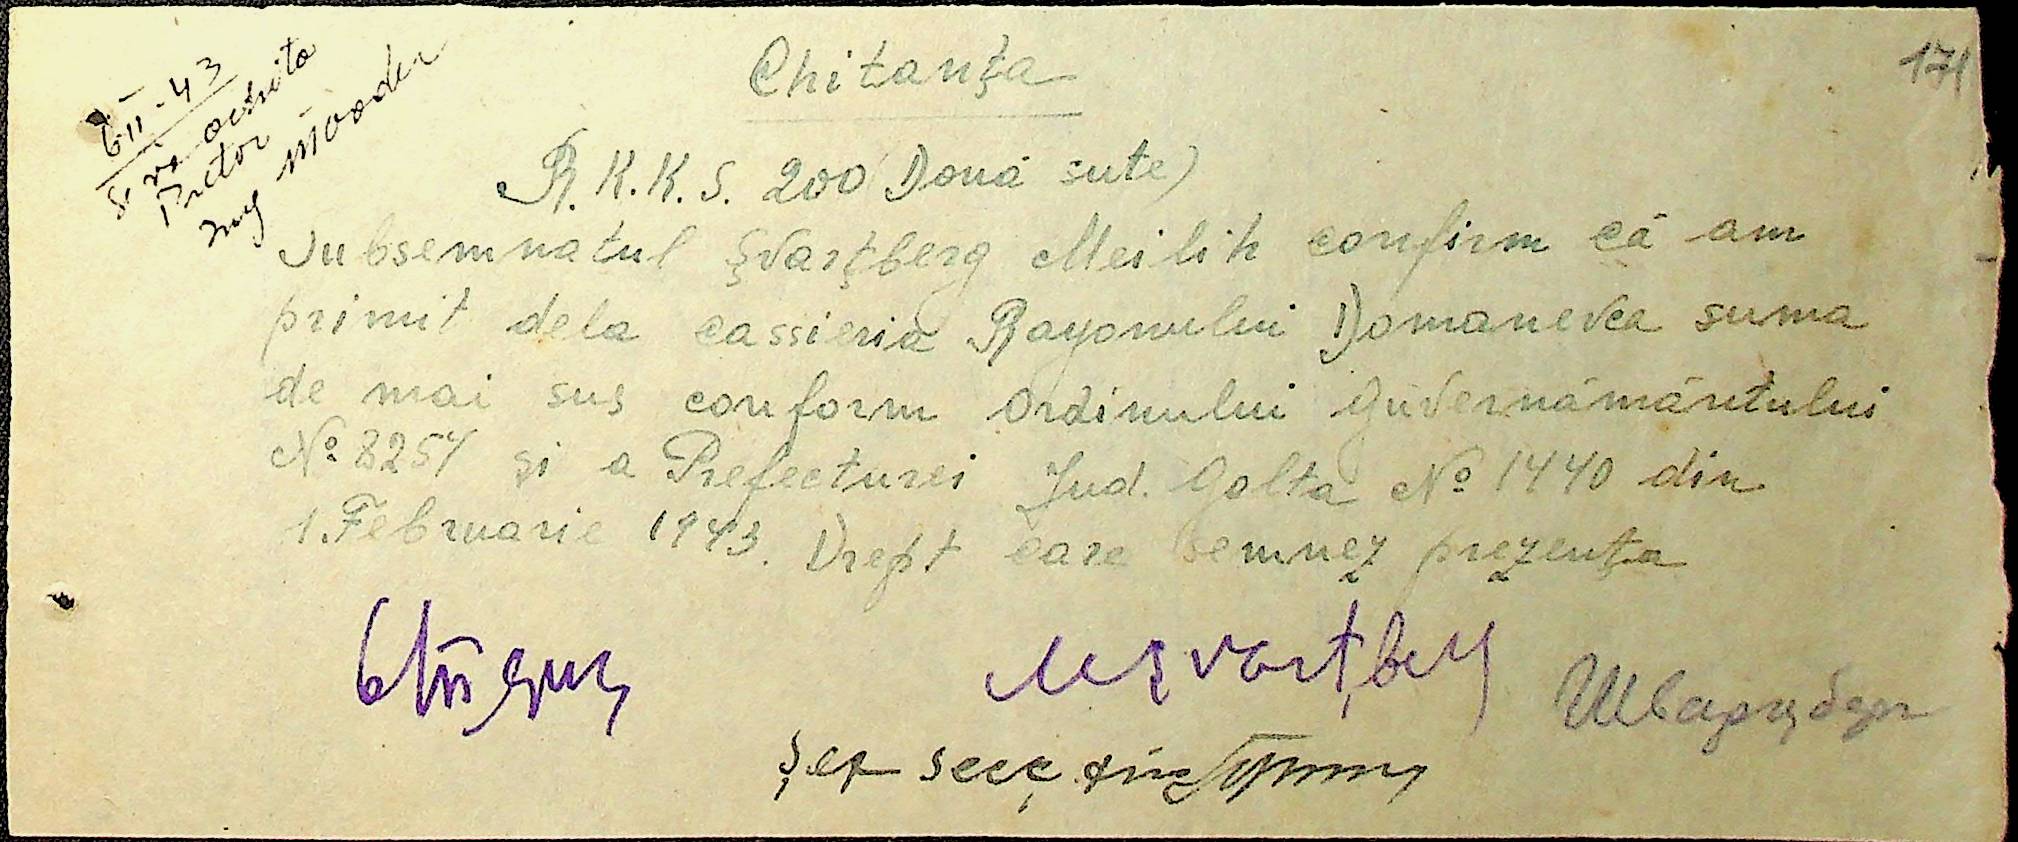 171
6 II - 43
Se va achita
Pretor
Chitanța
R.K.K.S. 200 Două sute)
Subsemnatul Șvarțberg Meilih confirm că am
primit dela cassieria Rayonului Domanevca suma
de mai sus conform ordinului Guvernământului
№ 8257 și a Prefecturei Jud. Golta № 1440 din
1. Februarie 1943. Drept care semnez prezența
M Șvarțberg
Шварцберг
Șef secț fin